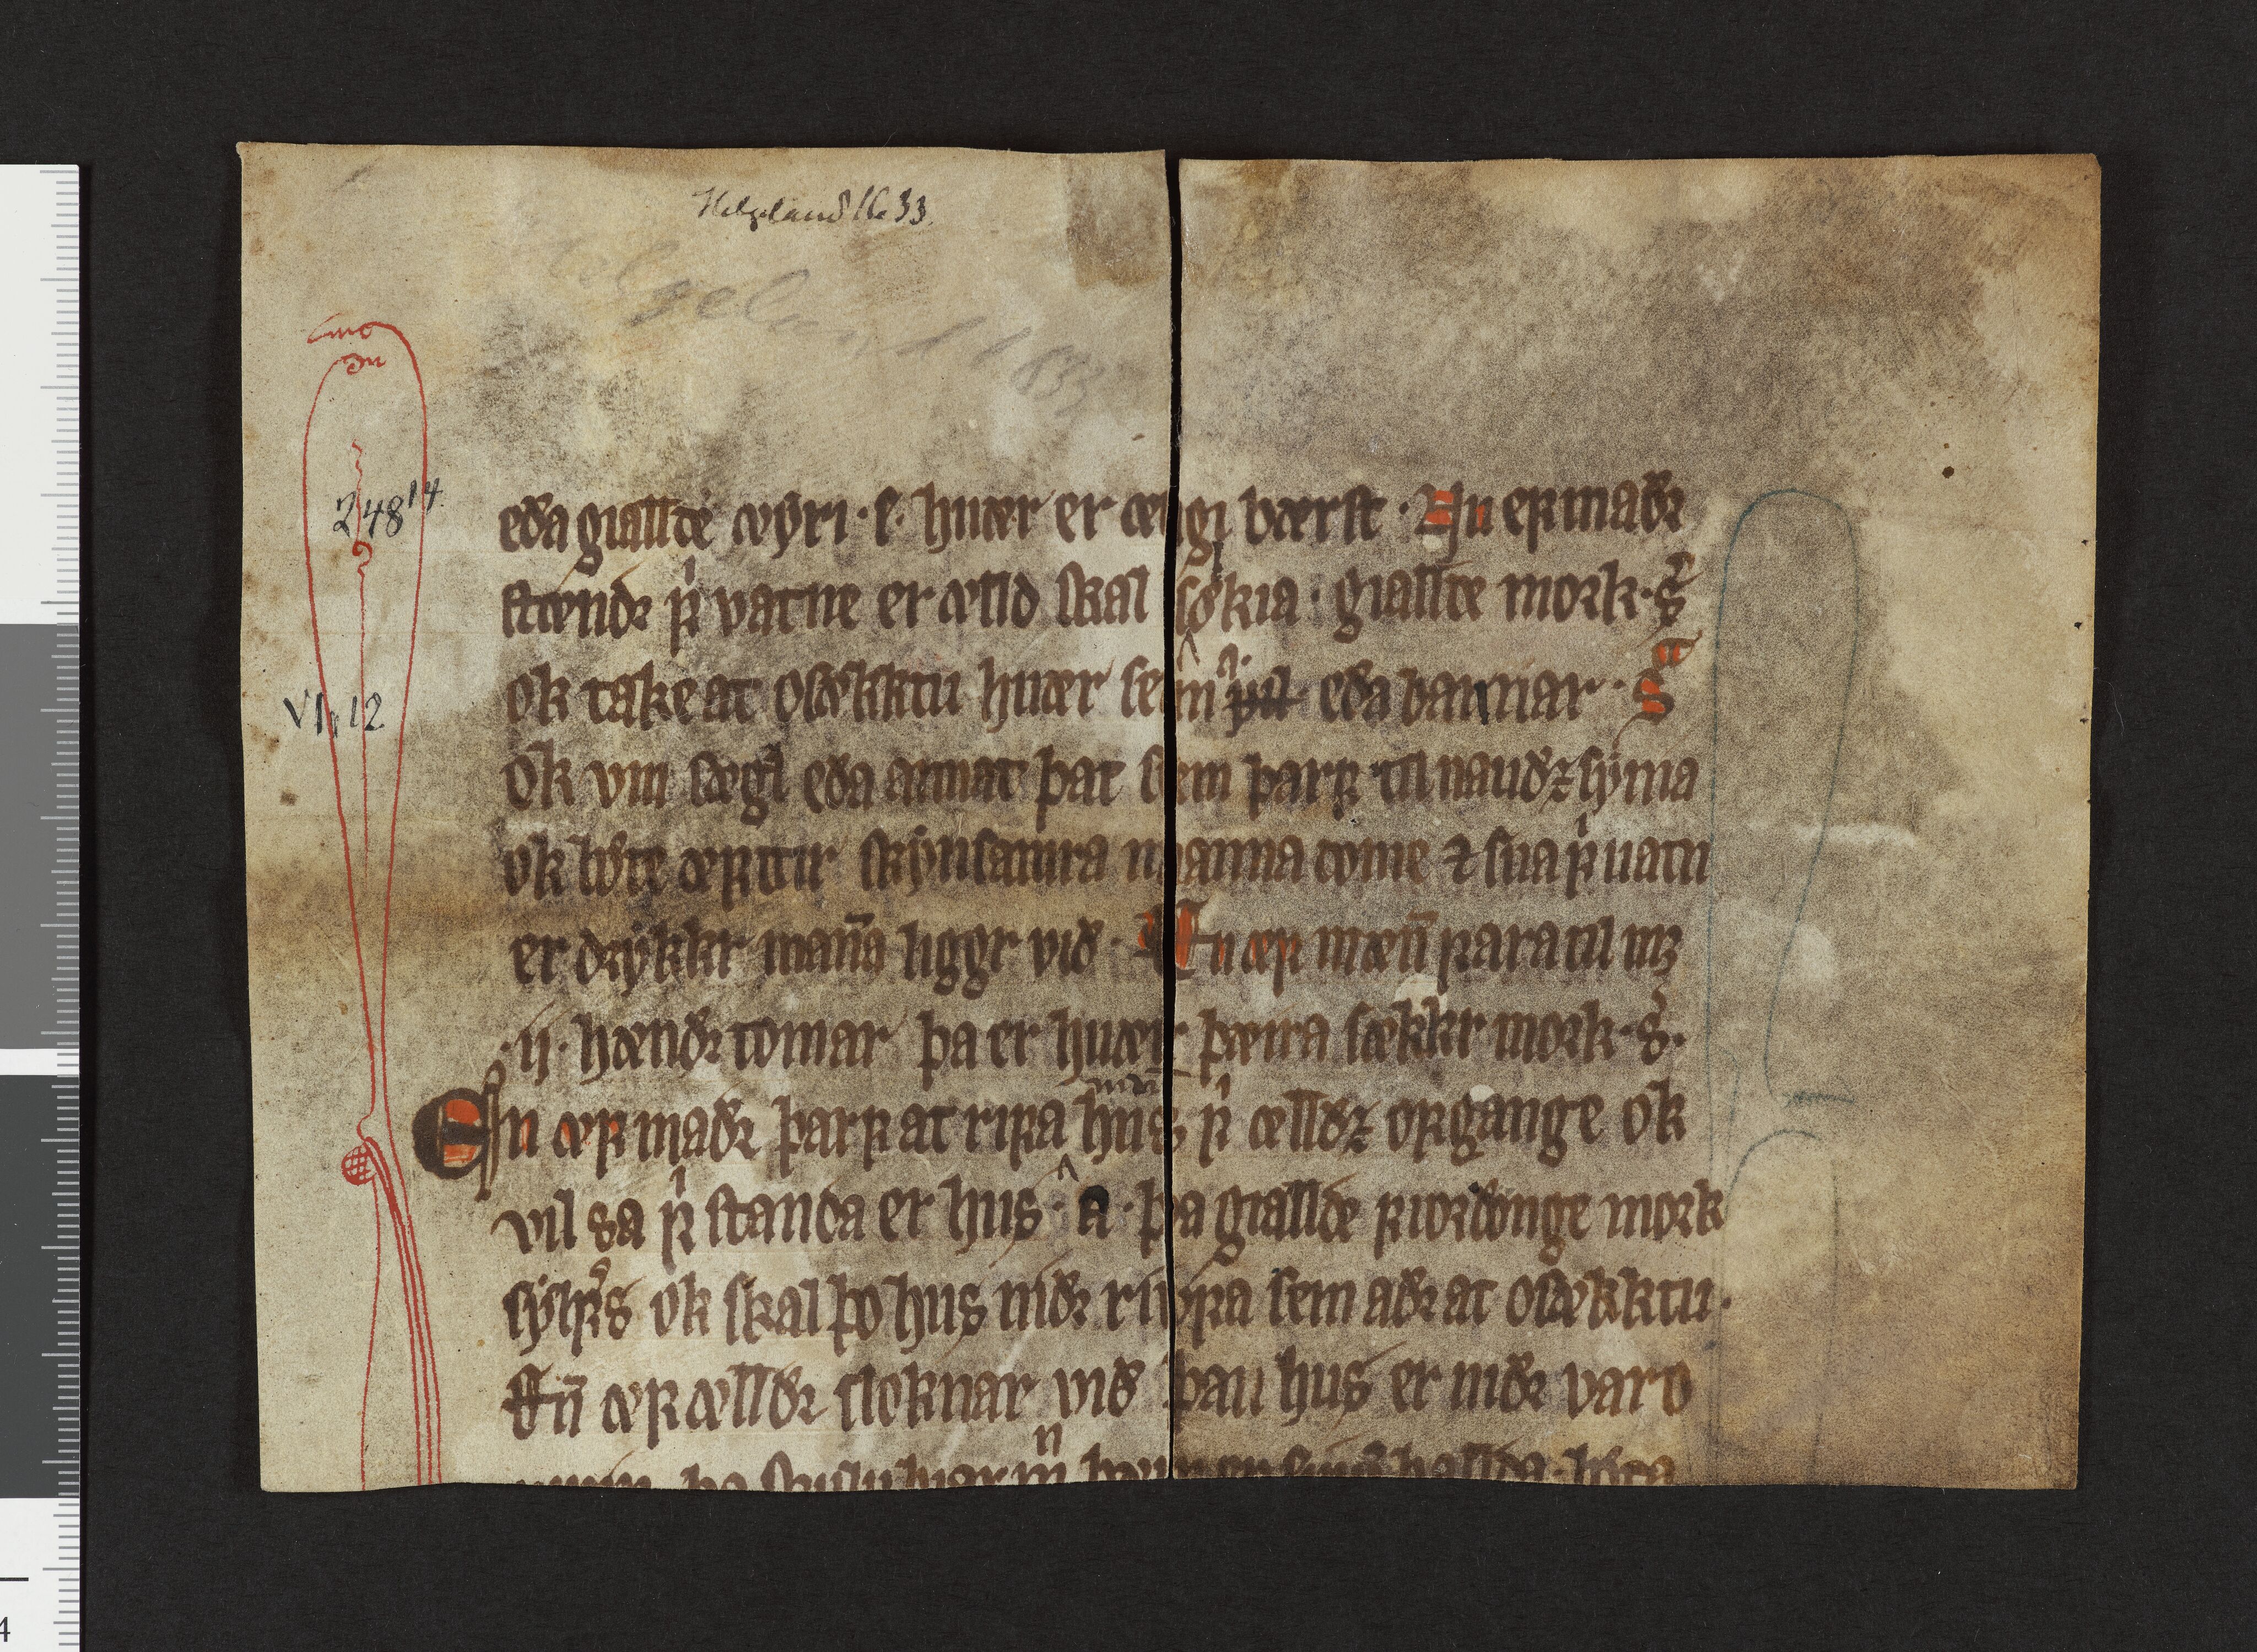 Helgeland 1633.
Helgeland 1633
248 14
VI, 12
eða giallde œyri · s · huær er œingi bærst · Nu eꝼ maðr
stændr ꝼͥ vatne er œlld skal sǿkia · giallde mork · s̃
ok take at osǿkktu huær sem a · þil eða bannar · S
ok vm sægl eða annat þat sem þarꝼ til nauðzsynia
ok lyte æꝼtir skynsamra manna dome ⁊ sua ꝼͥ uatn
er drykkr man̄a liggr við · En æꝼ mæn̄ ꝼara til mꝫ
· ij · hændr tomar þa er huær þæira sækkr mork · s ·
En æꝼ maðr þarꝼ at riꝼa hus ꝼͥ ælldz organge ok
man̄
vil sa ꝼͥ standa er hus · a · þa giallde ꝼiorðonge mork
sylꝼrs ok skal þo hus niðr riuꝼa sem aðr at osǿkktu ·
En̄ æꝼ ælldr sloknar við þau hus er niðr varo